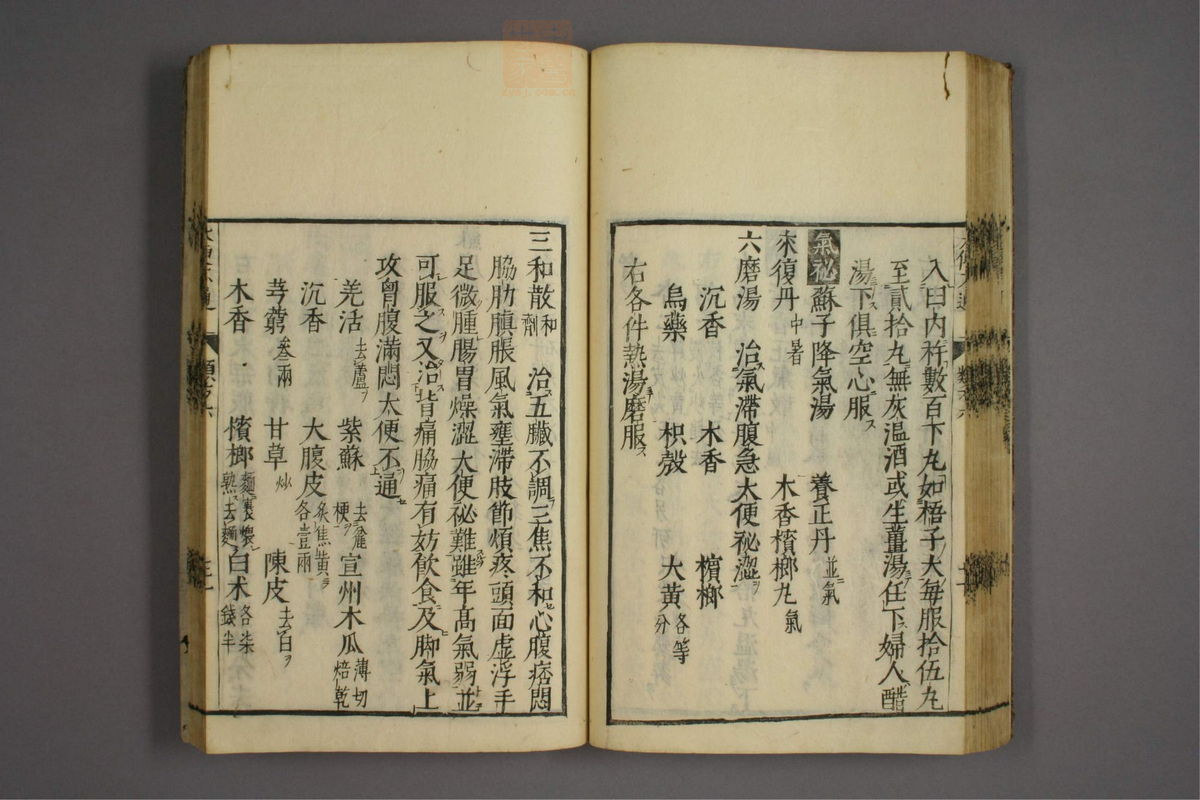 入臼內杵數百下丸如梧子大每服拾伍丸
至貳拾丸無灰溫酒或生薑湯任下婦人醋
湯下俱空心服ス
氣祕 蘇子降氣湯 養正丹並氣
來復丹中暑 木香檳榔丸氣
六磨湯 治氣滯腹急大便祕澀
沉香 木香 檳榔
烏藥 枳殼 大黃各等分
右各件熱湯磨服ス
三和散和劑 治五臟不調三焦不和心腹痞悶
脇肋䐜脹風氣壅滯肢節煩疼頭面虛浮手
足微腫腸胃燥澀大便祕難雖年高氣弱並
可服之又治背痛脇痛有妨飲食及脚氣上
攻胷腹滿悶大便不通
羌活去蘆 紫蘇去麄梗 宣州木瓜薄切焙乾
沉香 大腹皮炙焦黃各壹兩
芎藭叁兩 甘草炒 陳皮去白
木香 檳榔麵裹煨熟去麵 白朮各柒錢半